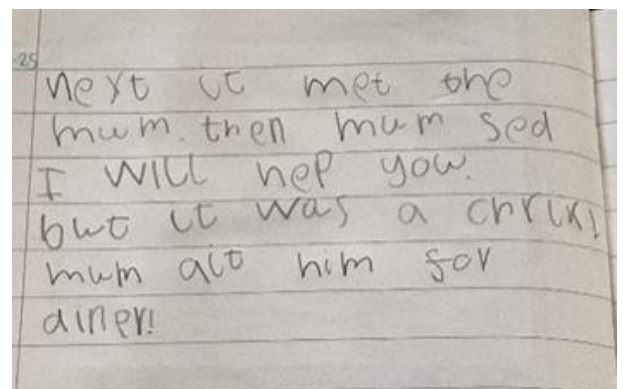 -25
next it met the
mum. then mum sed
I will hep you.
but it was a chrik!
mum ait him for
diner!